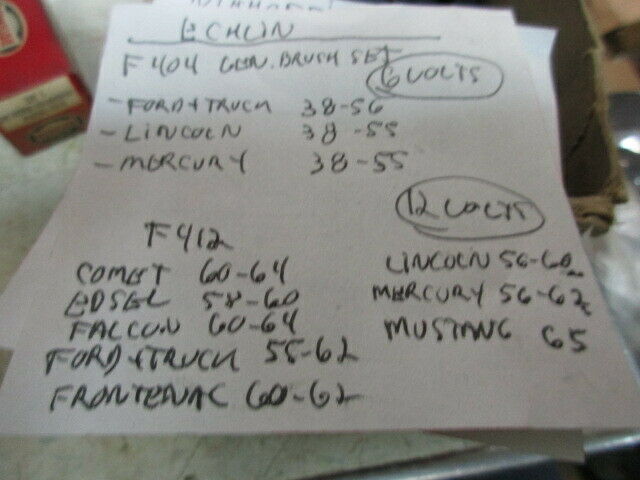 ECHLIN
F404 GEN. BRUSH SET
6 VOLTS
- FORD + TRUCK 38-56
- LINCOLN 38-55
- MERCURY 38-55
12 VOLTS
F412
COMET 60-64
EDSEL 58-60
FALCON 60-64
FORD + TRUCK 55-62
FRONTENAC 60-62
LINCOLN 56-60
MERCURY 56-62
MUSTANG 65